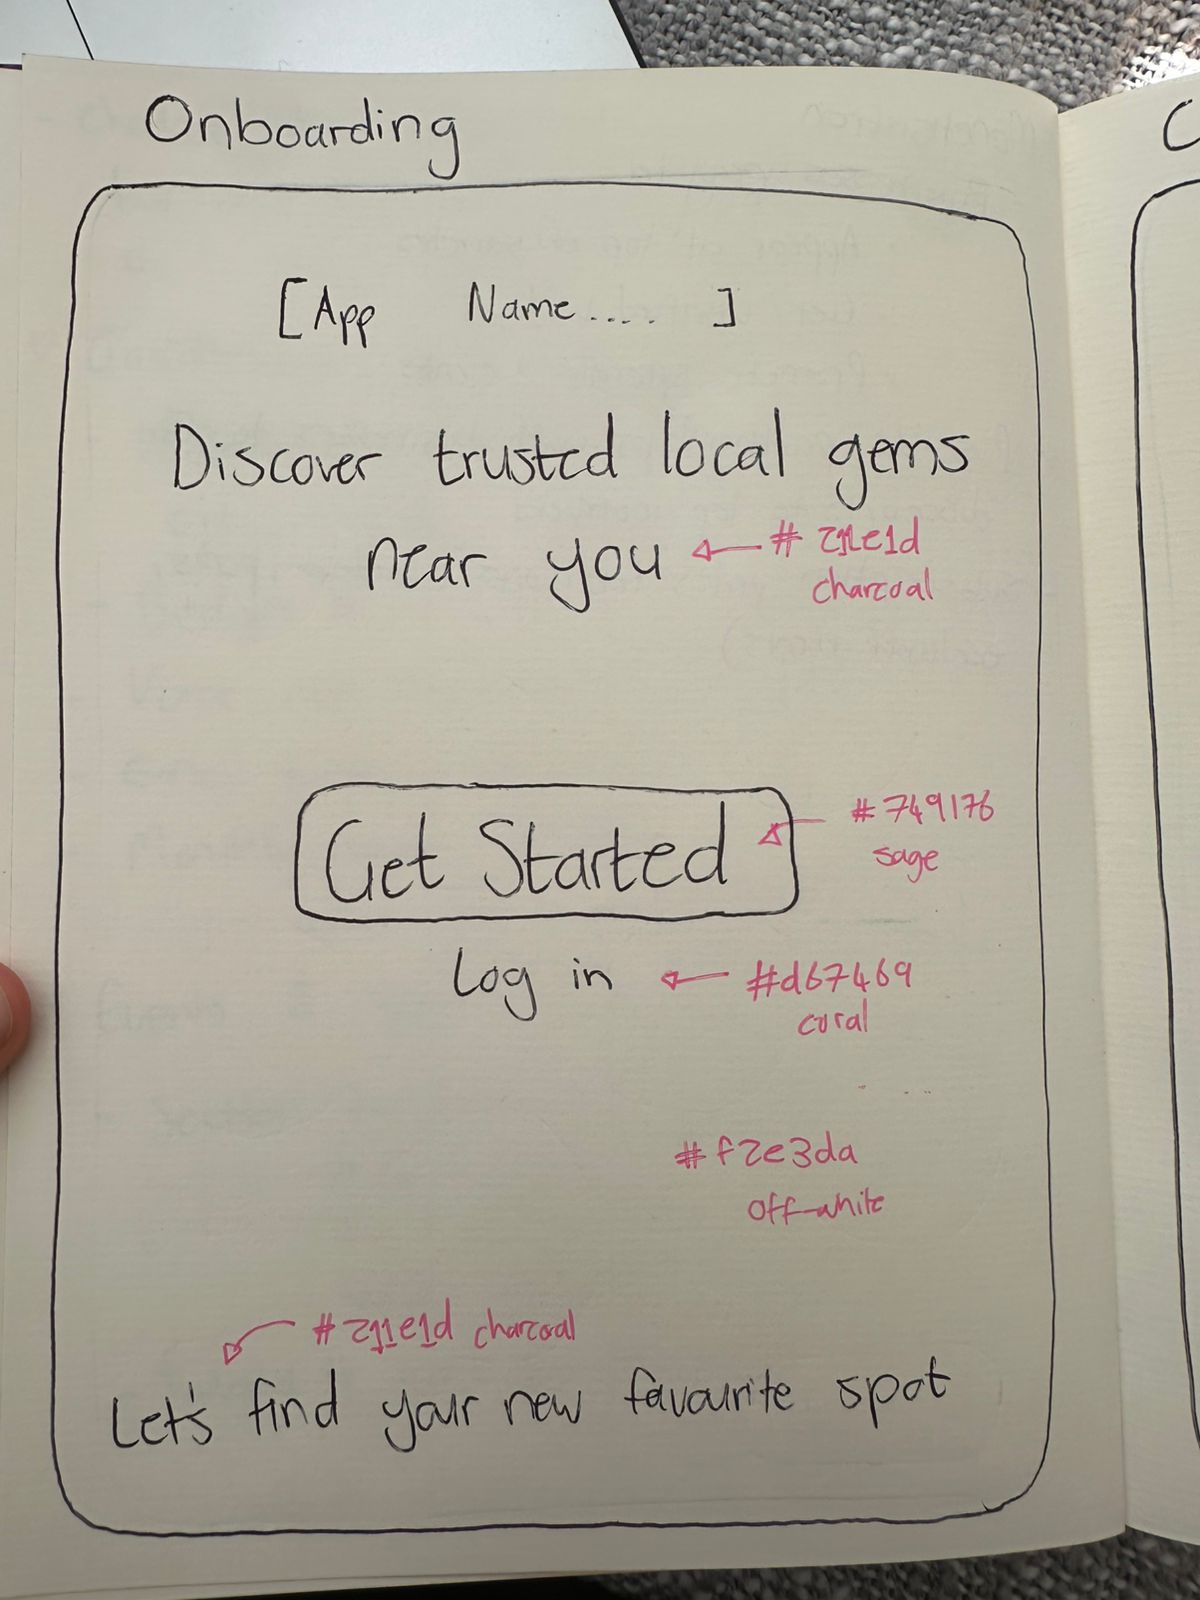 Onboarding
[App Name..... ]
Discover trusted local gems
near you
#211e1d
charcoal
Get Started
#749176
sage
Log in
#d67469
coral
#f2e3da
off-white
#211e1d charcoal
Let's find your new favourite spot
C